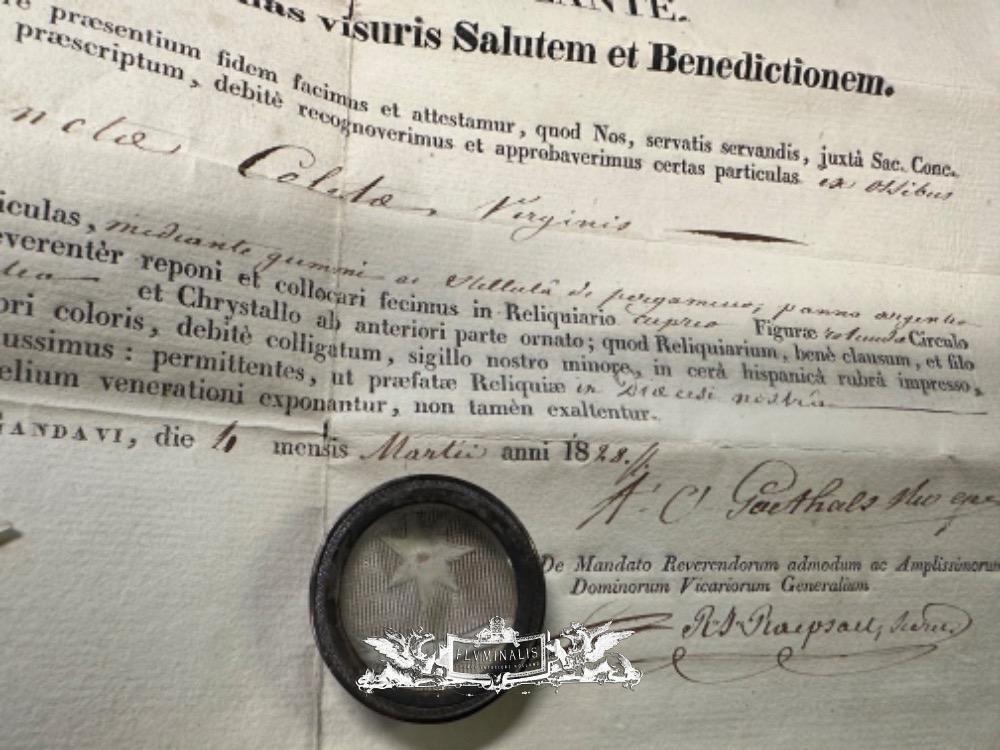 ANTE.
visuris Salutem et Benedictionem.
præsentium fidem facimus et attestamur, quod Nos, servatis servandis, juxtà Sac. Conc.
præscriptum, debitè recognoverimus et approbaverimus certas particulas ex ossibus
nctæ Coletæ Virginis
iculas, mediante gummi ac stellulâ de pergameno, panno argenteo
everentèr reponi et collocari fecimus in Reliquiario cupreo Figuræ rotundæ Circulo
et Chrystallo ab anteriori parte ornato; quod Reliquiarium, benè clausum, et filo
ori coloris, debitè colligatum, sigillo nostro minore, in cerâ hispanicâ rubrâ impresso,
ussimus: permittentes, ut præfatæ Reliquiæ in Diœcesi nostrâ
elium venerationi exponantur, non tamèn exaltentur.
GANDAVI, die 4 mensis Martii anni 1828.
A. C. Goethals
De Mandato Reverendorum admodum ac Amplissimorum
Dominorum Vicariorum Generalium
FLVMINALIS